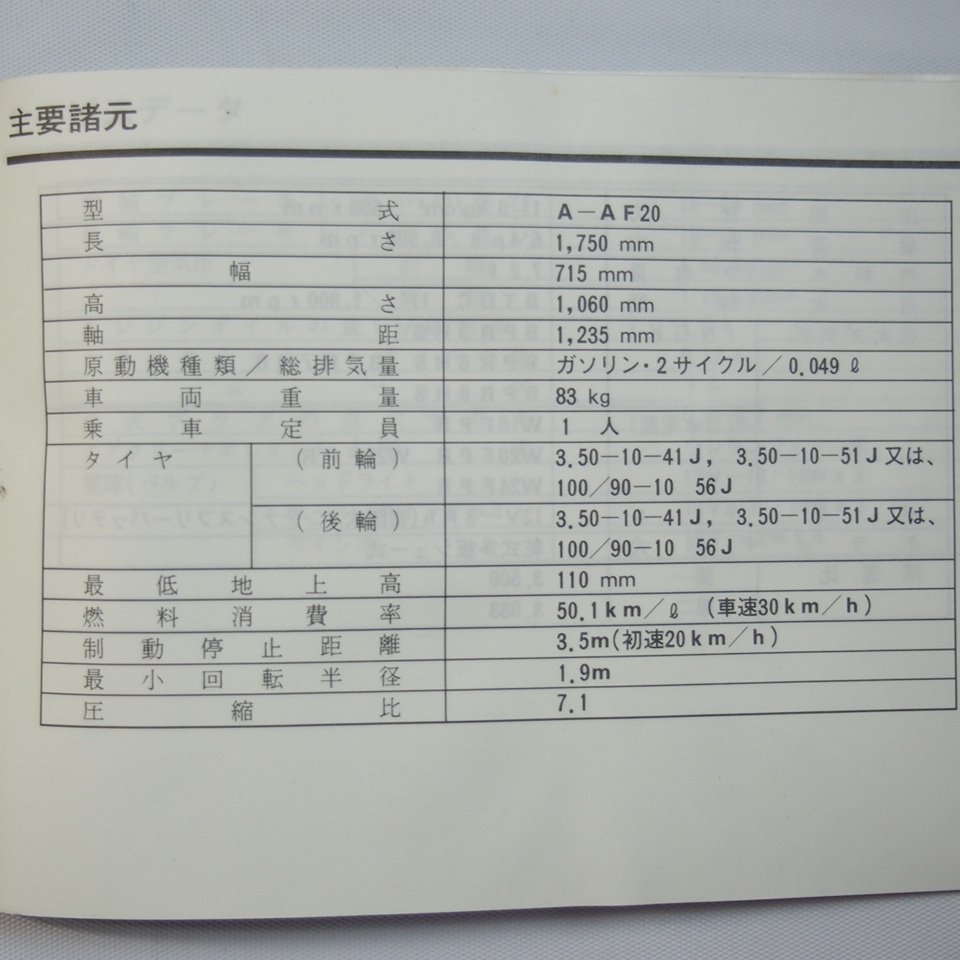 主要諸元
型式 A－AF20
長さ 1,750 mm
幅 715 mm
高さ 1,060 mm
軸距 1,235 mm
原動機種類／総排気量 ガソリン・2サイクル／0.049 ℓ
車両重量 83 kg
乗車定員 1 人
タイヤ (前輪) 3.50－10－41J, 3.50－10－51J又は、
100／90－10 56J
(後輪) 3.50－10－41J, 3.50－10－51J又は、
100／90－10 56J
最低地上高 110 mm
燃料消費率 50.1km／ℓ (車速30km／h)
制動停止距離 3.5m(初速20km／h)
最小回転半径 1.9m
圧縮比 7.1